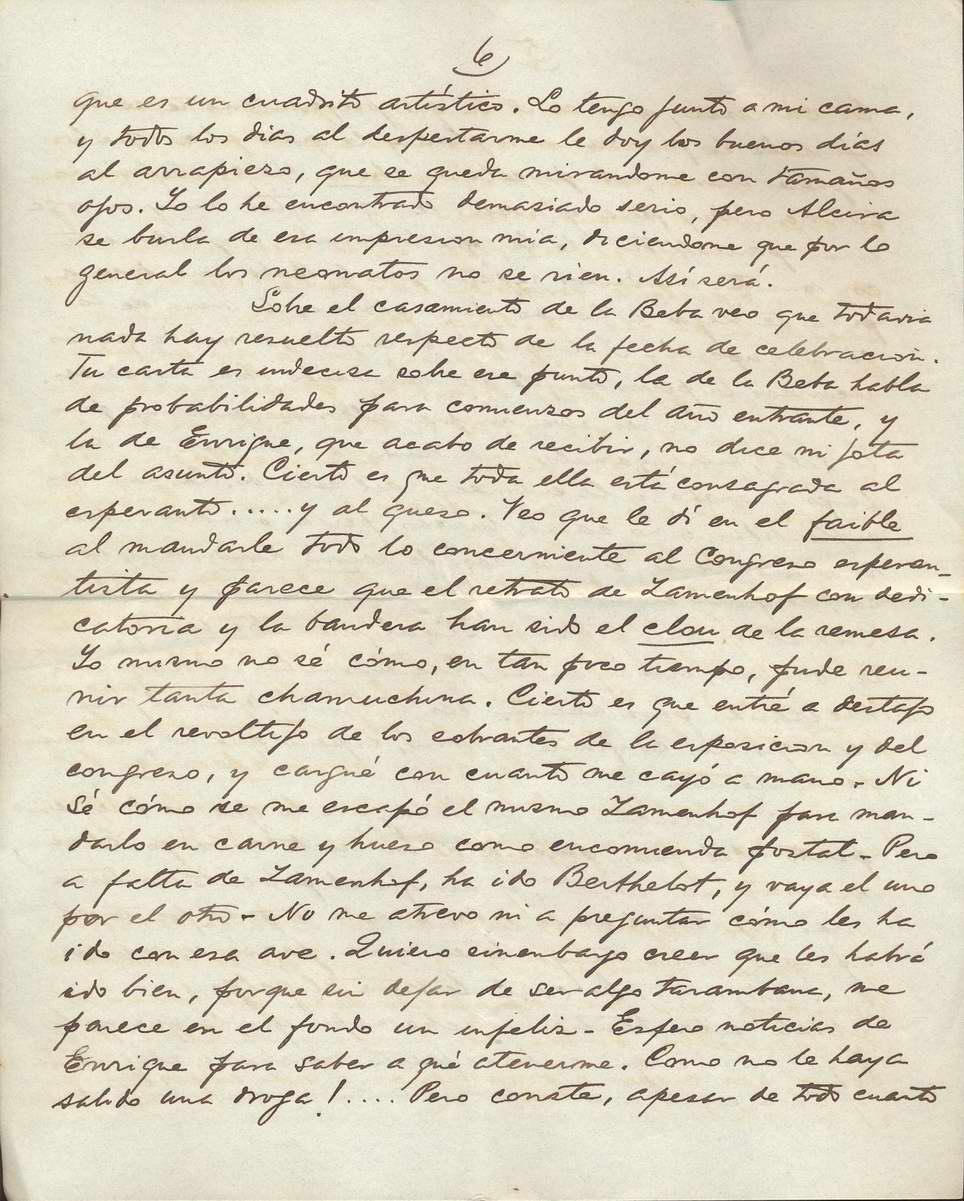 6
que es un cuadrito artístico. Lo tengo junto a mi cama,
y todos los dias al despertarme le doy los buenos días
al arrapiezo, que se queda mirandome con tamaños
ojos. Yo lo he encontrado demasiado serio, pero Alcira
se burla de esa impresion mía, diciendome que por lo
general los neonatos no se rien. Así será.
Sobre el casamiento de la Beba veo que todavia
nada hay resuelto respecto de la fecha de celebracion.
Tu carta es indecisa sobre ese punto, la de la Beba habla
de probabilidades para comienzos del año entrante, y
la de Enrique, que acabo de recibir, no dice ni jota
del asunto. Cierto es que toda ella está consagrada al
esperanto.....y al queso. Veo que le dí en el faible
al mandarle todo lo concerniente al Congreso esperan-
tista y parece que el retrato de Zamenhof con dedi-
catoria y la bandera han sido el clou de la remesa.
Yo mismo no sé cómo, en tan poco tiempo, pude reu-
nir tanta chamuchina. Cierto es que entré a destajo
en el revoltijo de los sobrantes de la esposicion y del
congreso, y cargué con cuanto me cayó a mano. Ni
sé cómo se me escapó el mismo Zamenhof para man-
darlo en carne y hueso como encomienda postal. Pero
a falta de Zamenhof, ha ido Berthelot, y vaya el uno
por el otro. No me atrevo ni a preguntar cómo les ha
ido con esa ave. Quiero sinembargo creer que les habrá
ido bien, porque sin dejar de ser algo tarambana, me
parece en el fondo un infeliz. Espero noticias de
Enrique para saber a qué atenerme. Como no le haya
salido una droga!.... Pero conste, apesar de todo cuanto